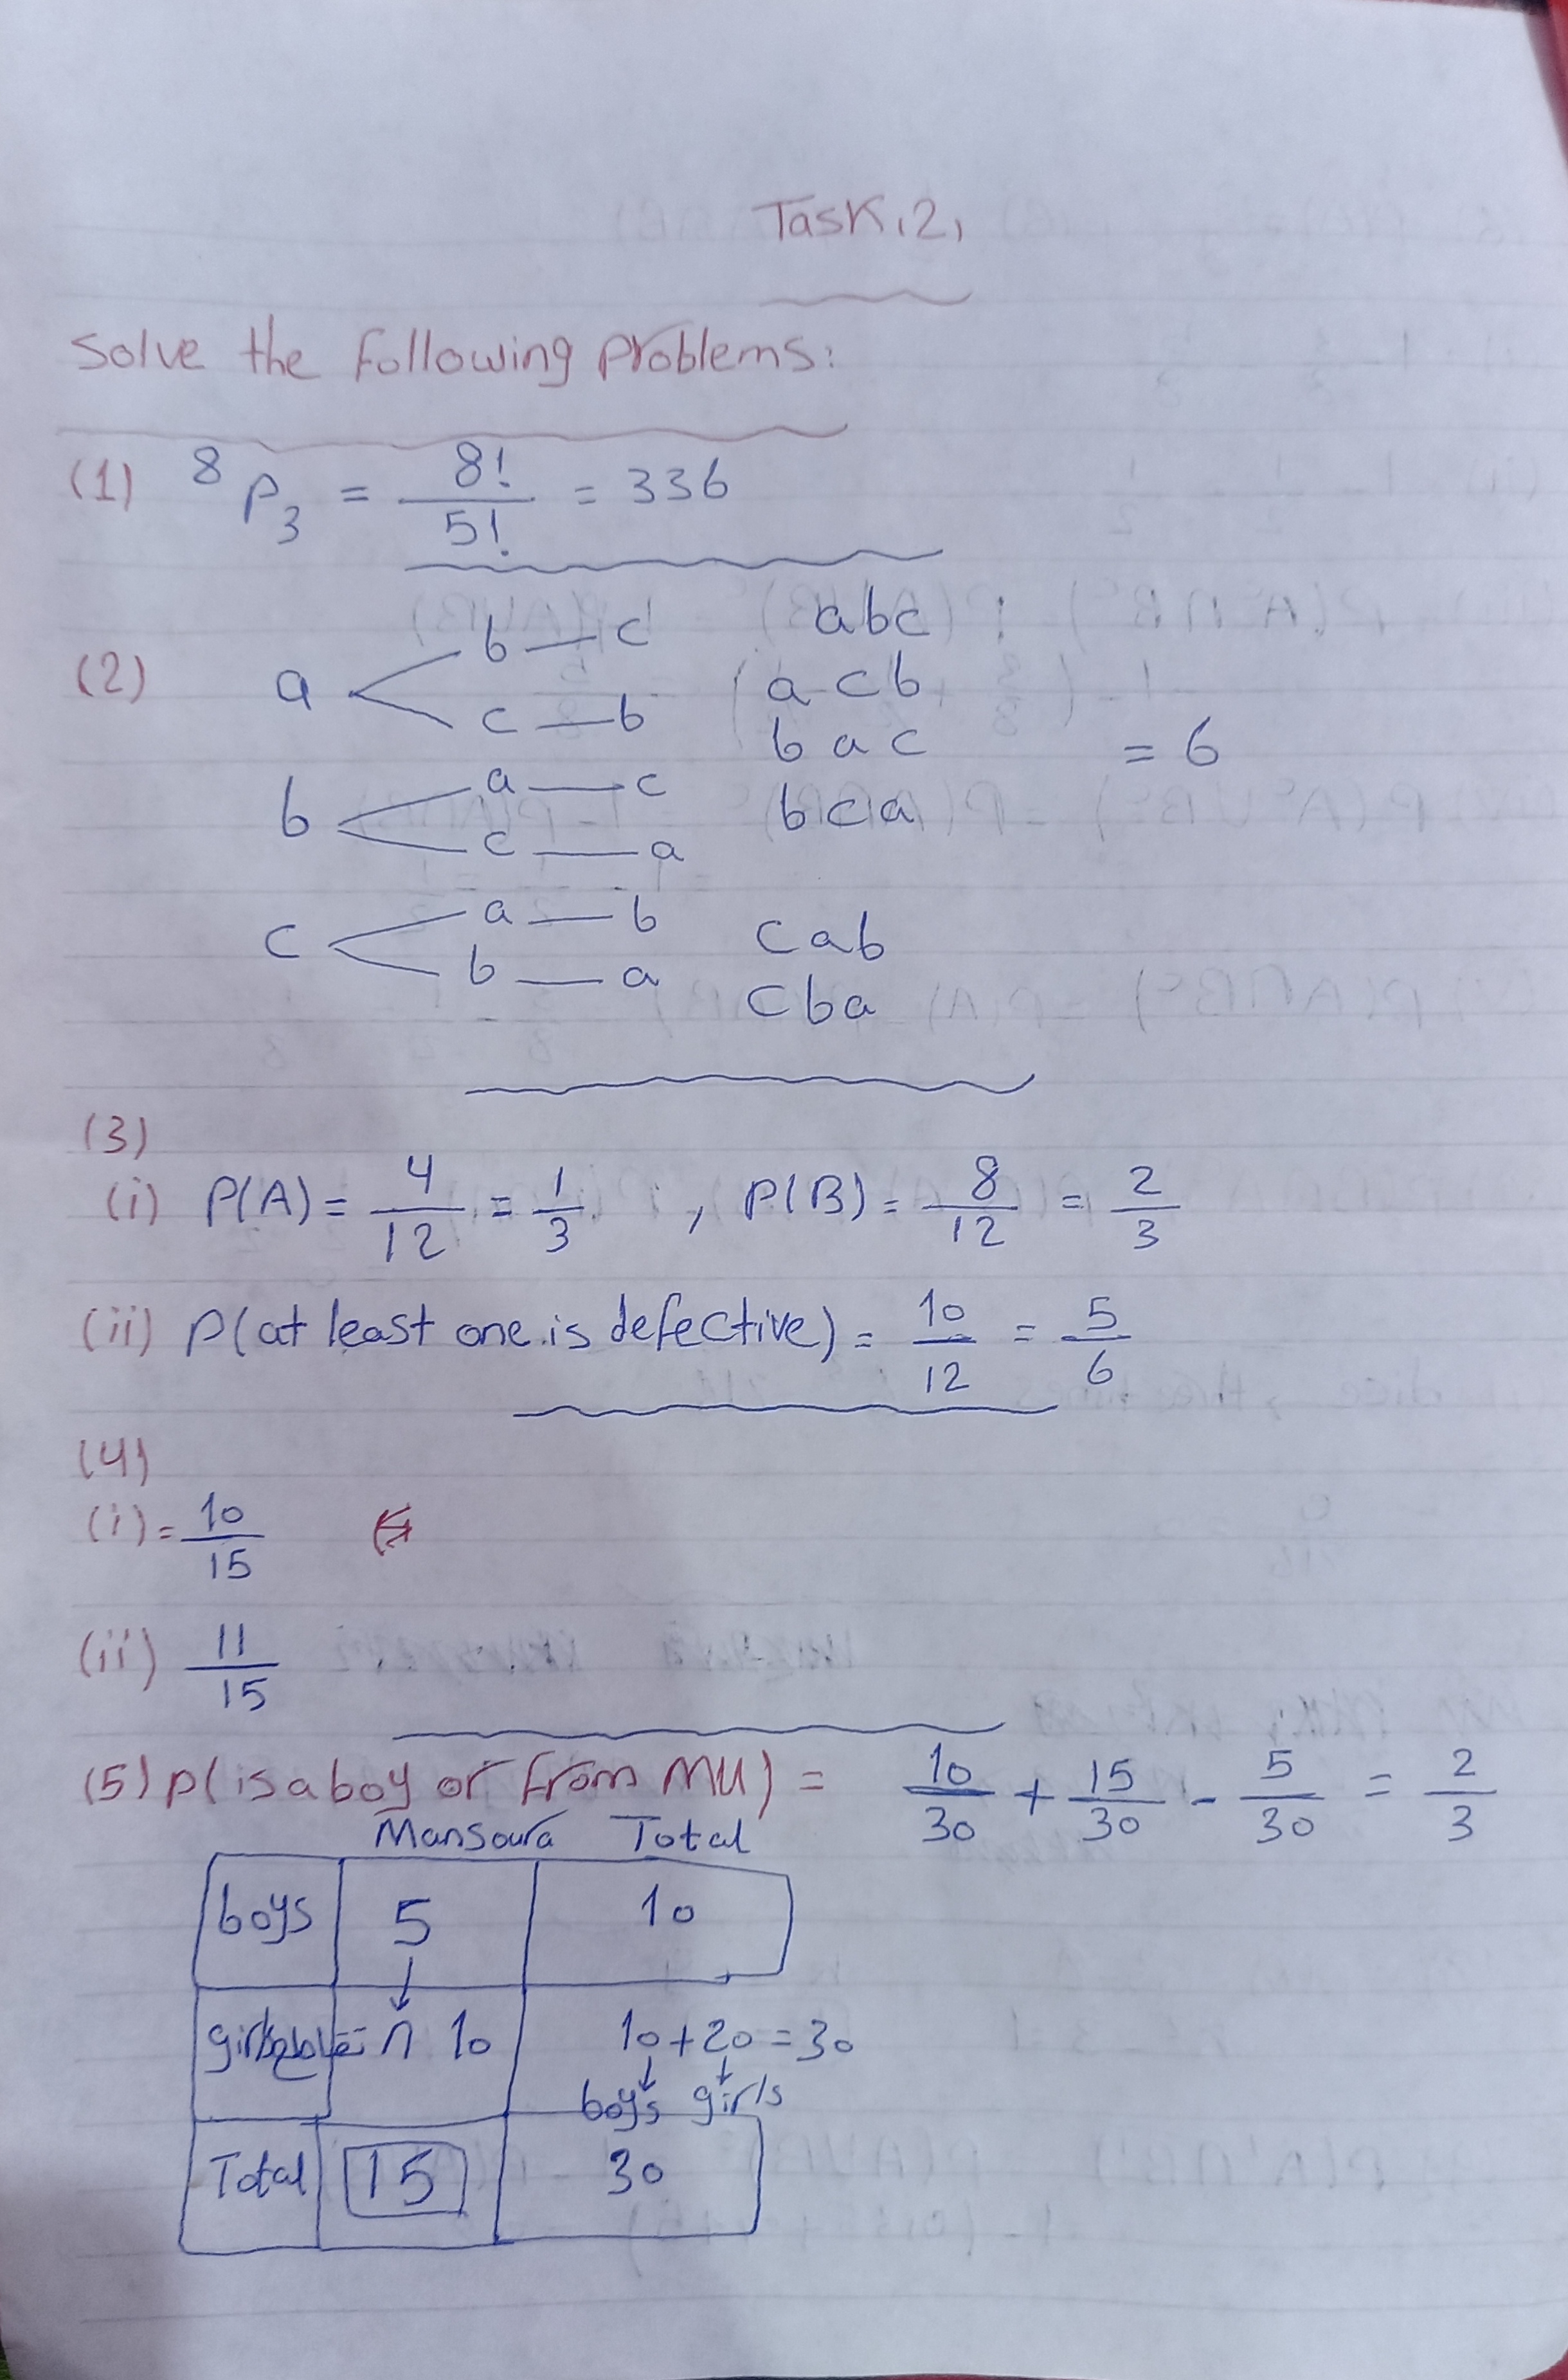 Task 2
Solve the following problems:
(1) ⁸P₃ = 8!/5! = 336
(2) a < b — c abc
c — b a c b
b < a — c b a c = 6
c — a b c a
c < a — b c a b
b — a c b a
(3)
(i) P(A) = 4/12 = 1/3 , P(B) = 8/12 = 2/3
(ii) P(at least one is defective) = 10/12 = 5/6
(4)
(i) = 10/15
(ii) 11/15
(5) P(is a boy or from MU) = 10/30 + 15/30 - 5/30 = 2/3
Mansoura Total
boys 5 10
↓
∩ 10 10 + 20 = 30
↓ ↓
boys girls
Total 15 30